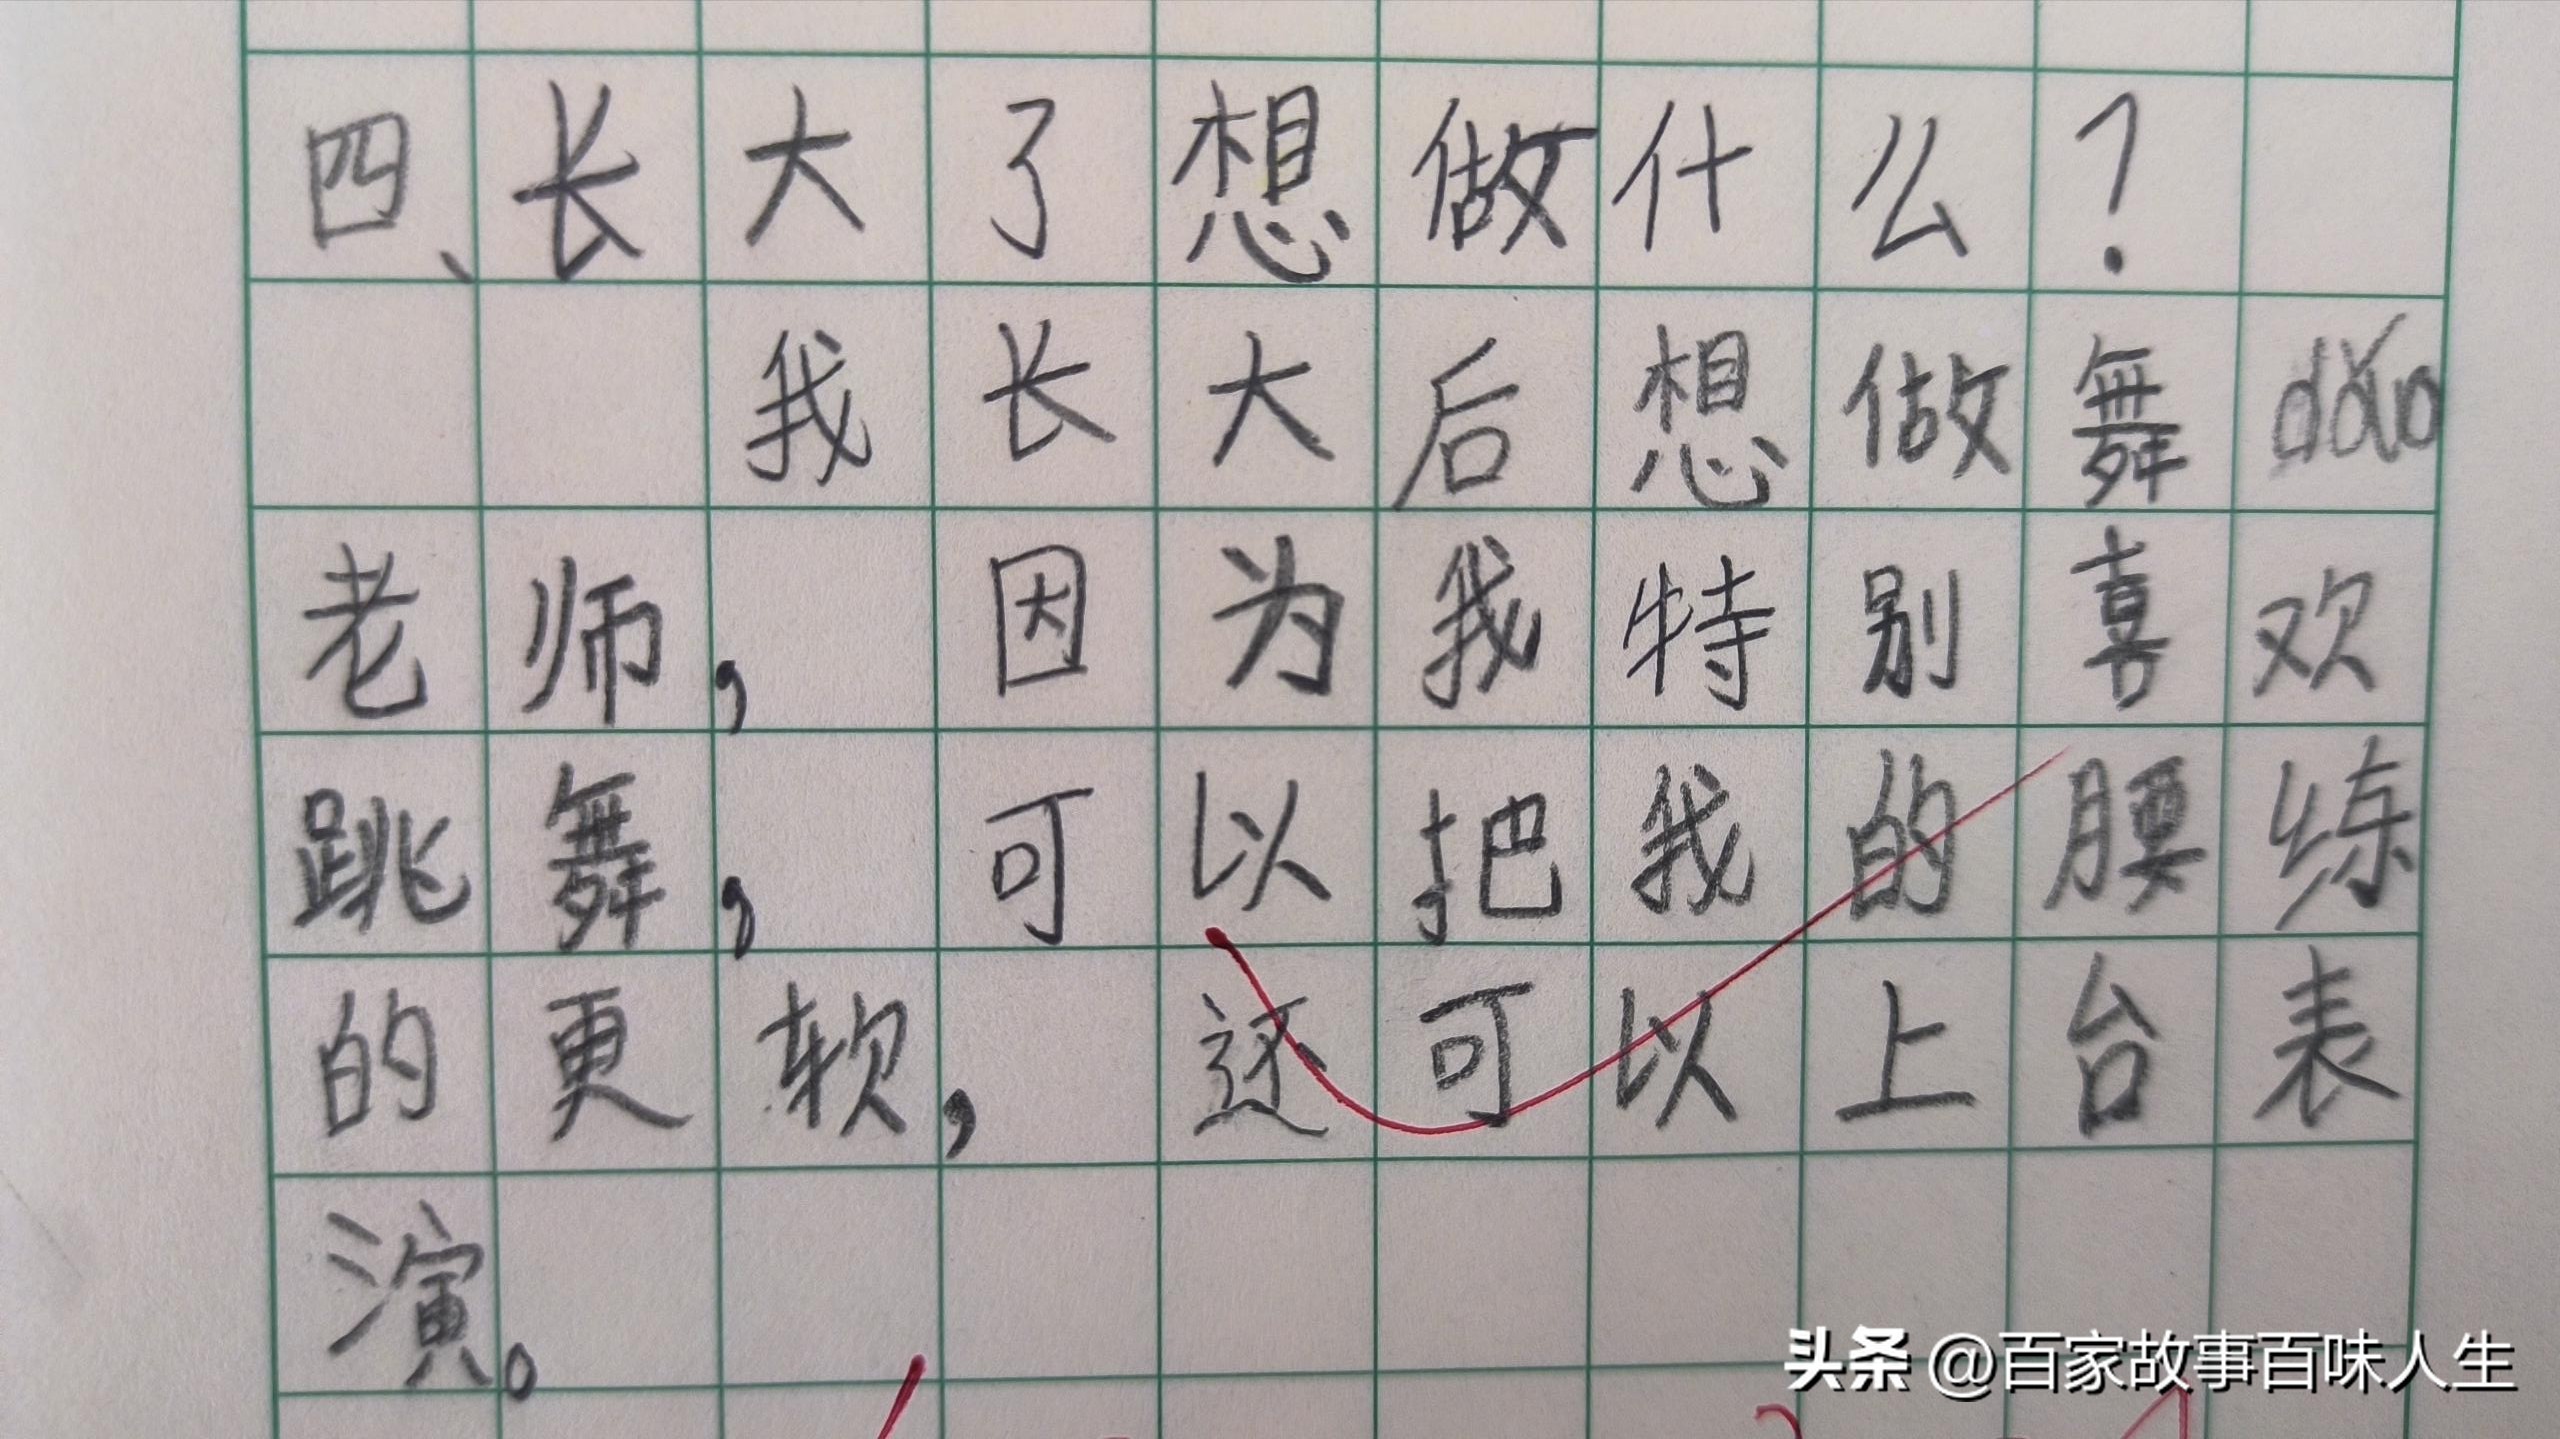 四、长大了想做什么？
我长大后想做舞dǎo
老师，因为我特别喜欢
跳舞，可以把我的腰练
的更软，还可以上台表
演。
头条 @百家故事百味人生